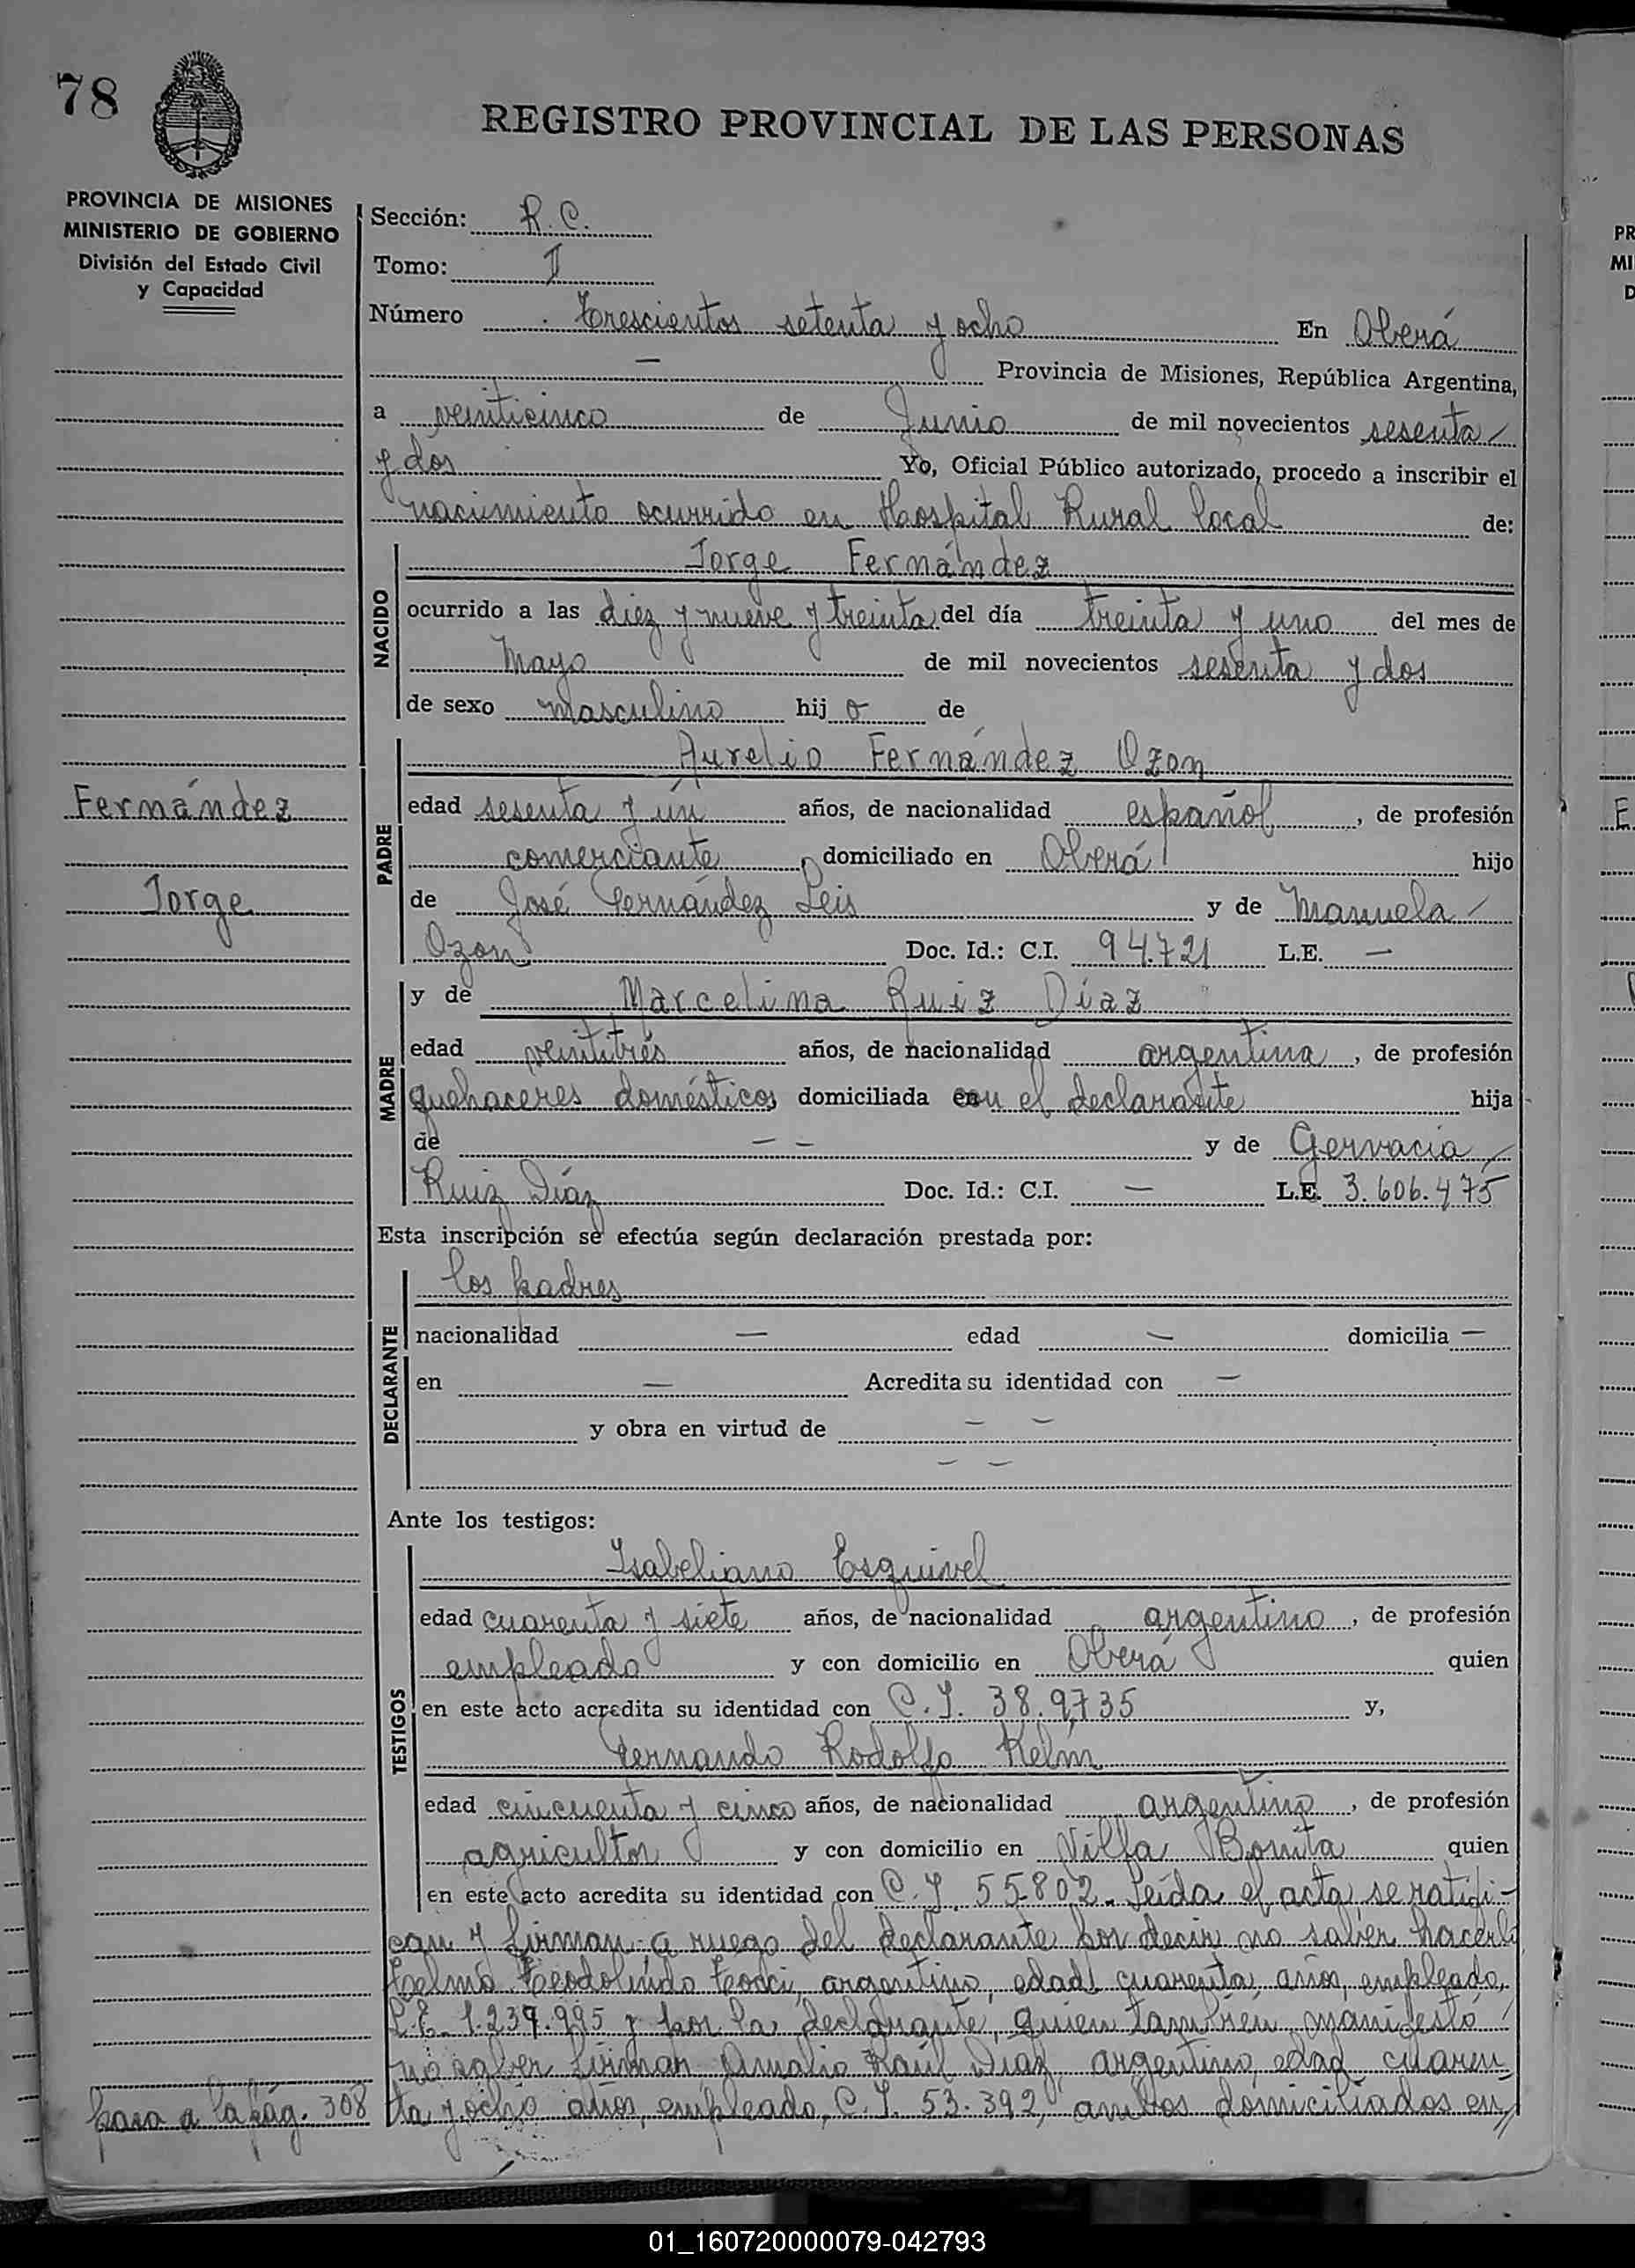 78
REGISTRO PROVINCIAL DE LAS PERSONAS
PROVINCIA DE MISIONES
MINISTERIO DE GOBIERNO
División del Estado Civil
y Capacidad
Sección: R. C.
Tomo: I
Número Trescientos setenta y ocho En Oberá
— Provincia de Misiones, República Argentina,
a veinticinco de Junio de mil novecientos sesenta
y dos Yo, Oficial Público autorizado, procedo a inscribir el
nacimiento ocurrido en Hospital Rural local de:
NACIDO
Jorge Fernández
ocurrido a las diez y nueve y treinta del día treinta y uno del mes de
Mayo de mil novecientos sesenta y dos
de sexo masculino hijo de
PADRE
Aurelio Fernández Ozon
Fernández
edad sesenta y ún años, de nacionalidad español, de profesión
comerciante, domiciliado en Oberá hijo
Jorge
de José Fernández Leis y de Manuela
Ozon Doc. Id.: C.I. 94.721 L.E. —
MADRE
y de Marcelina Ruiz Díaz
edad veintitrés años, de nacionalidad argentina, de profesión
quehaceres domésticos domiciliada con el declarante hija
de — — y de Gervacia
Ruiz Díaz Doc. Id.: C.I. — L.E. 3.606.475
Esta inscripción se efectúa según declaración prestada por:
DECLARANTE
los padres
nacionalidad — edad — domicilia —
en — Acredita su identidad con —
y obra en virtud de — —
— —
Ante los testigos:
TESTIGOS
Isabeliano Esquivel
edad cuarenta y siete años, de nacionalidad argentino, de profesión
empleado y con domicilio en Oberá quien
en este acto acredita su identidad con C.I. 38.9735 y,
Fernando Rodolfo Kelm
edad cincuenta y cinco años, de nacionalidad argentino, de profesión
agricultor y con domicilio en Villa Bonita quien
en este acto acredita su identidad con C.I. 55802. Leída el acta, se ratifi-
can y firman, a ruego del declarante por decir no saber hacerlo
Teodolindo argentino, edad cuarenta años, empleado,
L.E. 1.239.995 y por la declarante, quien también manifestó
no saber firmar Raúl Díaz, argentino, edad cuaren
ta y ocho años, empleado, C.I. 53.392, ambos domiciliados en
pasa a la pág. 308
PR
MI
D
01_160720000079-042793